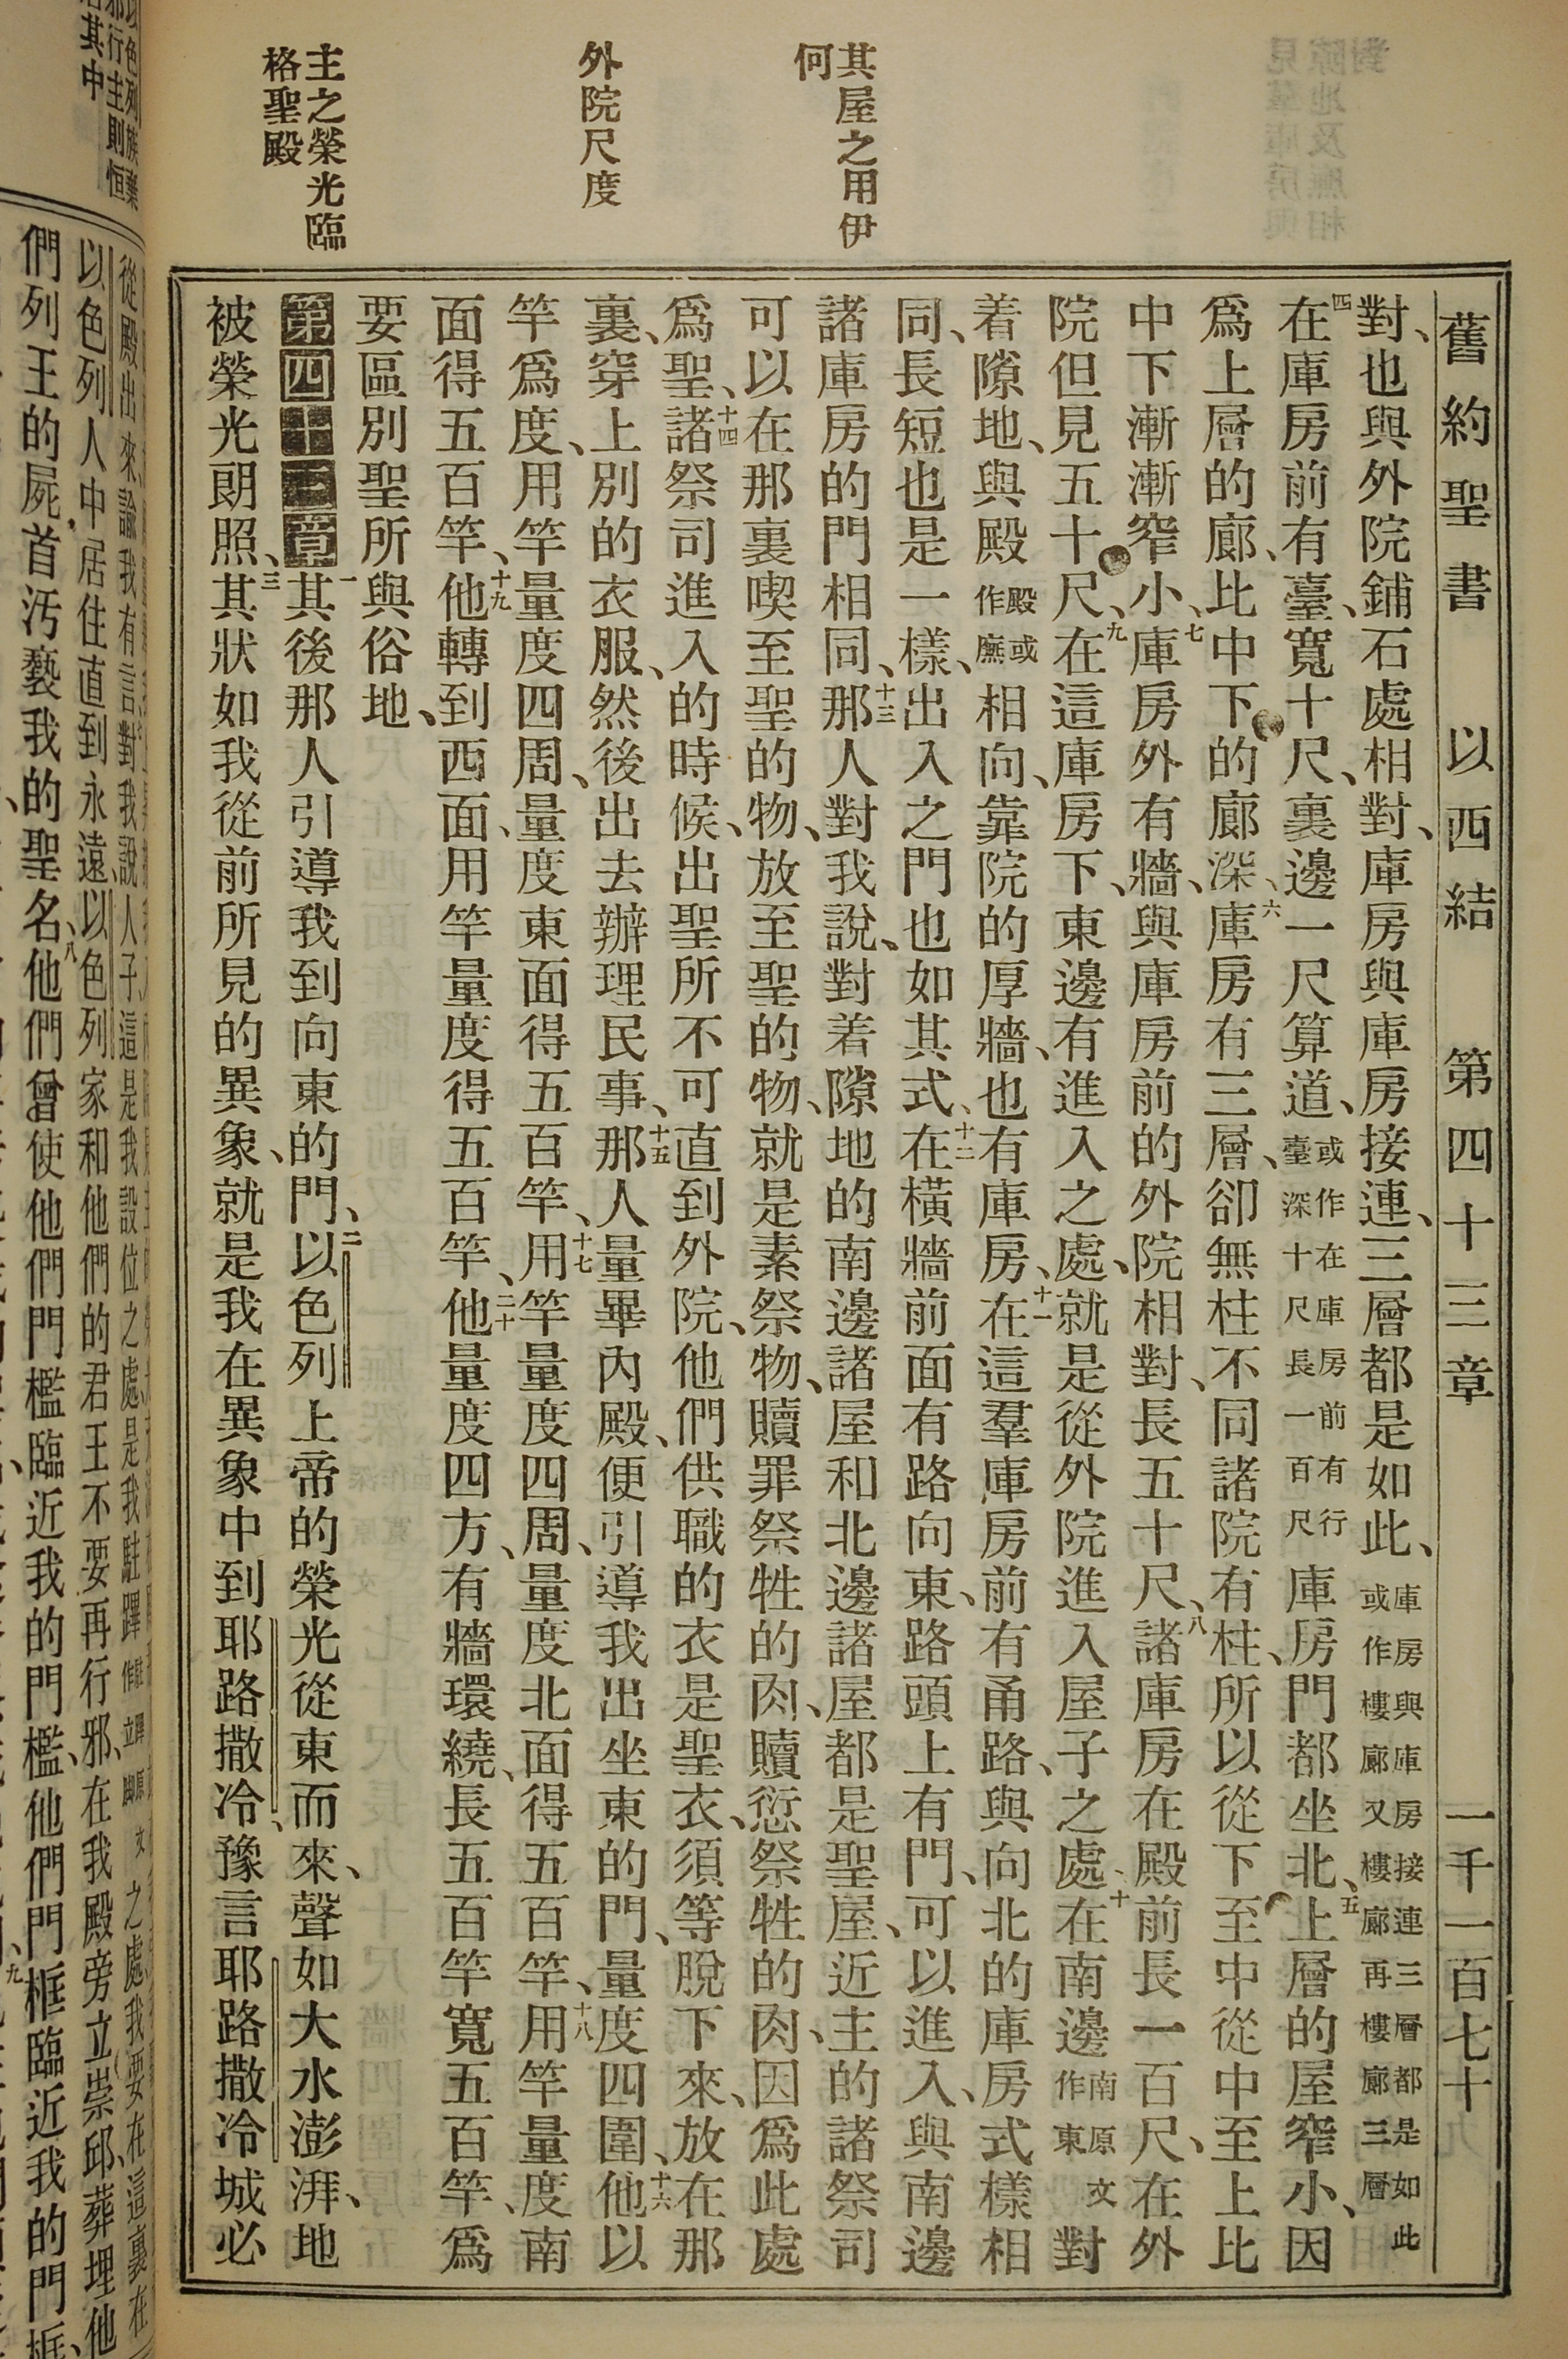 舊約聖書　以西結　第四十三章　一千一百七十
其屋之用伊
何
外院尺度
主之榮光臨
格聖殿
對、也與外院鋪石處相對、庫房與庫房接連、三層都是如此、庫房與庫房接連三層都是如此或作樓廊又樓廊再樓廊三層
四在庫房前有臺、寬十尺、裏邊一尺算道、或作在庫房前有行臺深十尺長一百尺庫房門都坐北、五上層的屋窄小、因
爲上層的廊、比中下的廊深、六庫房有三層、卻無柱不同諸院有柱、所以從下至中從中至上比
中下漸漸窄小、七庫房外有牆、與庫房前的外院相對、長五十尺、八諸庫房在殿前長一百尺、在外
院但見五十尺、九在這庫房下、東邊有進入之處、就是從外院進入屋子之處、十在南邊南原文作東對
着隙地、與殿殿或作廡相向、靠院的厚牆、也有庫房、十一在這羣庫房前有甬路、與向北的庫房式樣相
同、長短也是一樣、出入之門也如其式、十二在橫牆前面有路向東、路頭上有門、可以進入、與南邊
諸庫房的門相同、十三那人對我說、對着隙地的南邊諸屋和北邊諸屋都是聖屋、近主的諸祭司
可以在那裏喫至聖的物、放至聖的物、就是素祭物、贖罪祭牲的肉、贖愆祭牲的肉、因爲此處
爲聖、十四諸祭司進入的時候、出聖所不可直到外院、他們供職的衣是聖衣、須等脫下來、放在那
裏、穿上別的衣服、然後出去辦理民事、十五那人量畢內殿、便引導我出坐東的門、量度四圍、十六他以
竿爲度、用竿量度四周、量度東面得五百竿、十七用竿量度四周、量度北面得五百竿、十八用竿量度南
面得五百竿、十九他轉到西面、用竿量度得五百竿、二十他量度四方、有牆環繞、長五百竿寬五百竿、爲
要區別聖所與俗地、
第四十三章一其後那人引導我到向東的門、二以色列上帝的榮光從東而來、聲如大水澎湃、地
被榮光照、三其狀如我從前所見的異象、就是我在異象中到耶路撒冷、豫言耶路撒冷城必
以色列族棄
邪行主則恒
其中
從殿出來、諭我有言對我說人子這是我設位之處是我駐蹕之處我要在這裏在
以色列人中居住直到永遠、以色列家和他們的君王不要再行邪、在我殿旁立崇邱、葬埋他
們列王的屍首汚褻我的聖名、八他們曾使他們門檻臨近我的門檻、他們門框臨近我的門框、